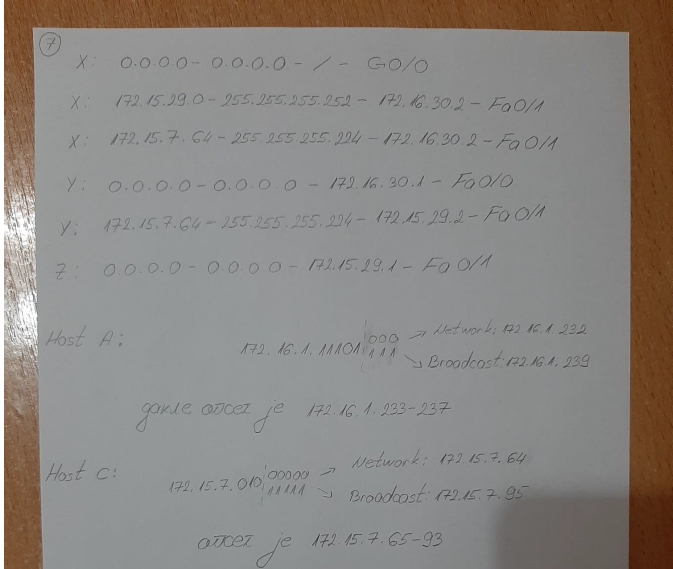 7
X: 0.0.0.0 - 0.0.0.0 - / - G0/0
X: 172.15.29.0 - 255.255.255.252 - 172.16.30.2 - Fa0/1
X: 172.15.7.64 - 255.255.255.224 - 172.16.30.2 - Fa0/1
Y: 0.0.0.0 - 0.0.0.0 - 172.16.30.1 - Fa0/0
Y: 172.15.7.64 - 255.255.255.224 - 172.15.29.2 - Fa0/1
Z: 0.0.0.0 - 0.0.0.0 - 172.15.29.1 - Fa0/1
Host A:
172.16.1.11101|000 → Network: 172.16.1.232
111 → Broadcast: 172.16.1.239
дакле опсег је 172.16.1.233-237
Host C:
172.15.7.010|00000 → Network: 172.15.7.64
11111 → Broadcast: 172.15.7.95
опсег је 172.15.7.65-93